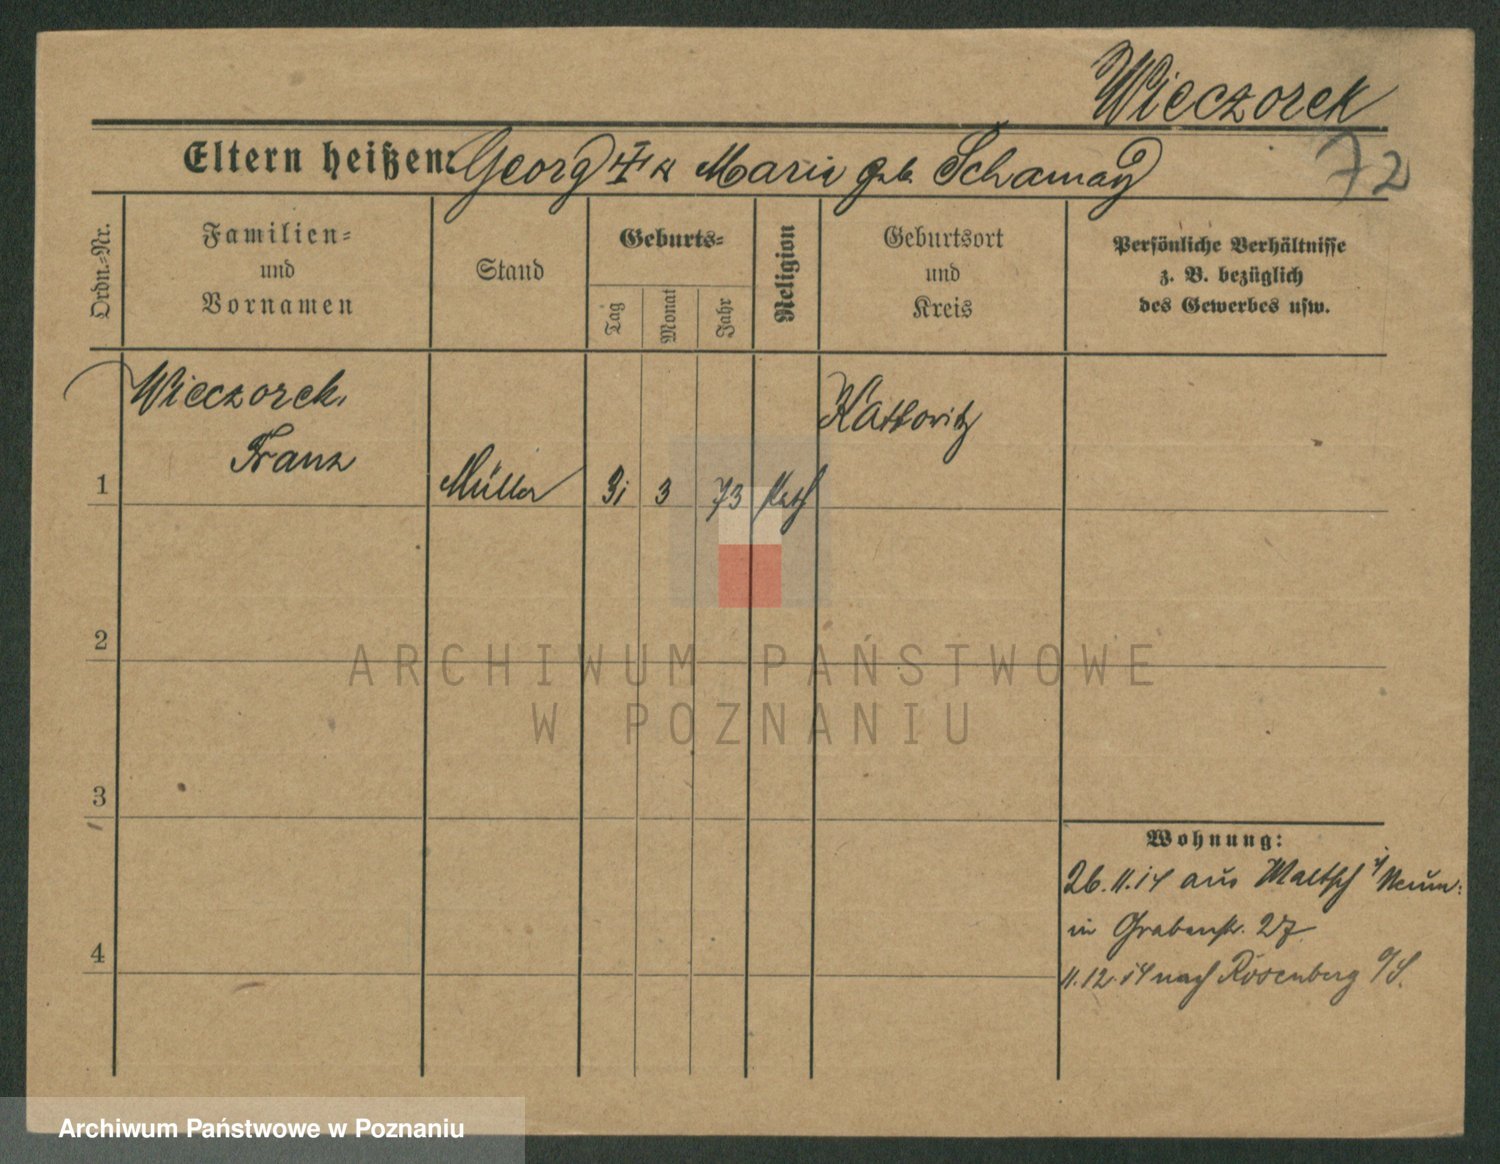 Wieczorek
72
Eltern heißen: Georg u. Marie geb. Schamay
Ordn.-Nr.
Familien-
und
Vornamen
Stand
Geburts-
Tag
Monat
Jahr
Religion
Geburtsort
und
Kreis
Persönliche Verhältnisse
z. B. bezüglich
des Gewerbes usw.
1
Wieczorek,
Franz
Müller
31
3
73
Kath
Kattowitz
2
ARCHIWUM PAŃSTWOWE
W POZNANIU
3
Wohnung:
26.11.14 aus Maltsch
in Grabenstr. 27
4
11.12.14 nach Rosenberg O/S.
Archiwum Państwowe w Poznaniu